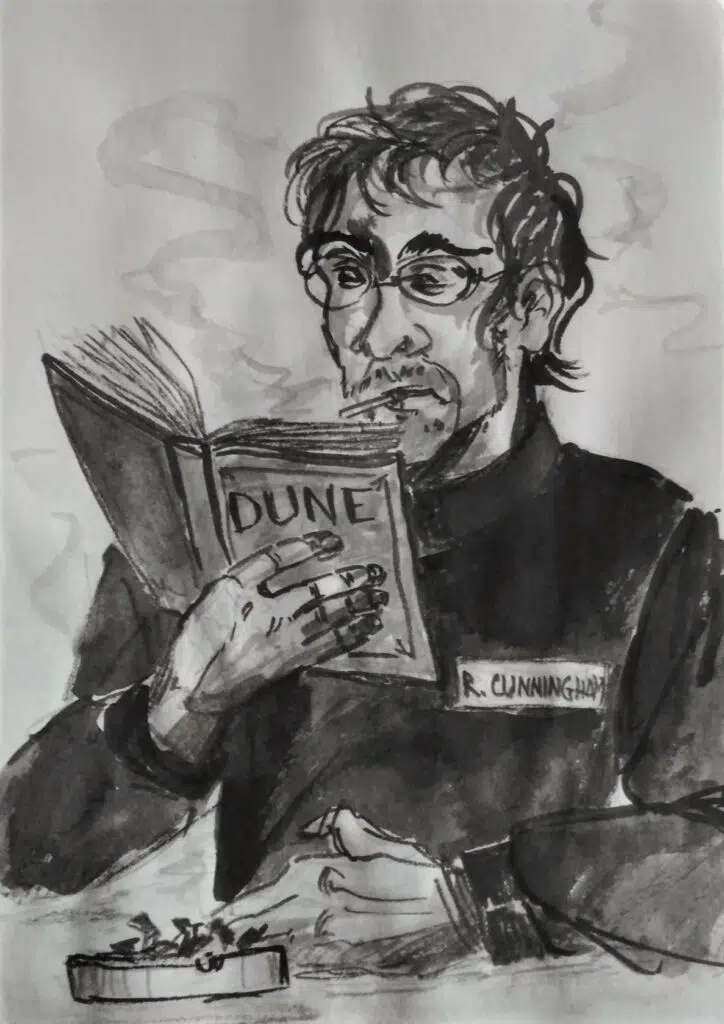 DUNE
R. CUNNINGHAM